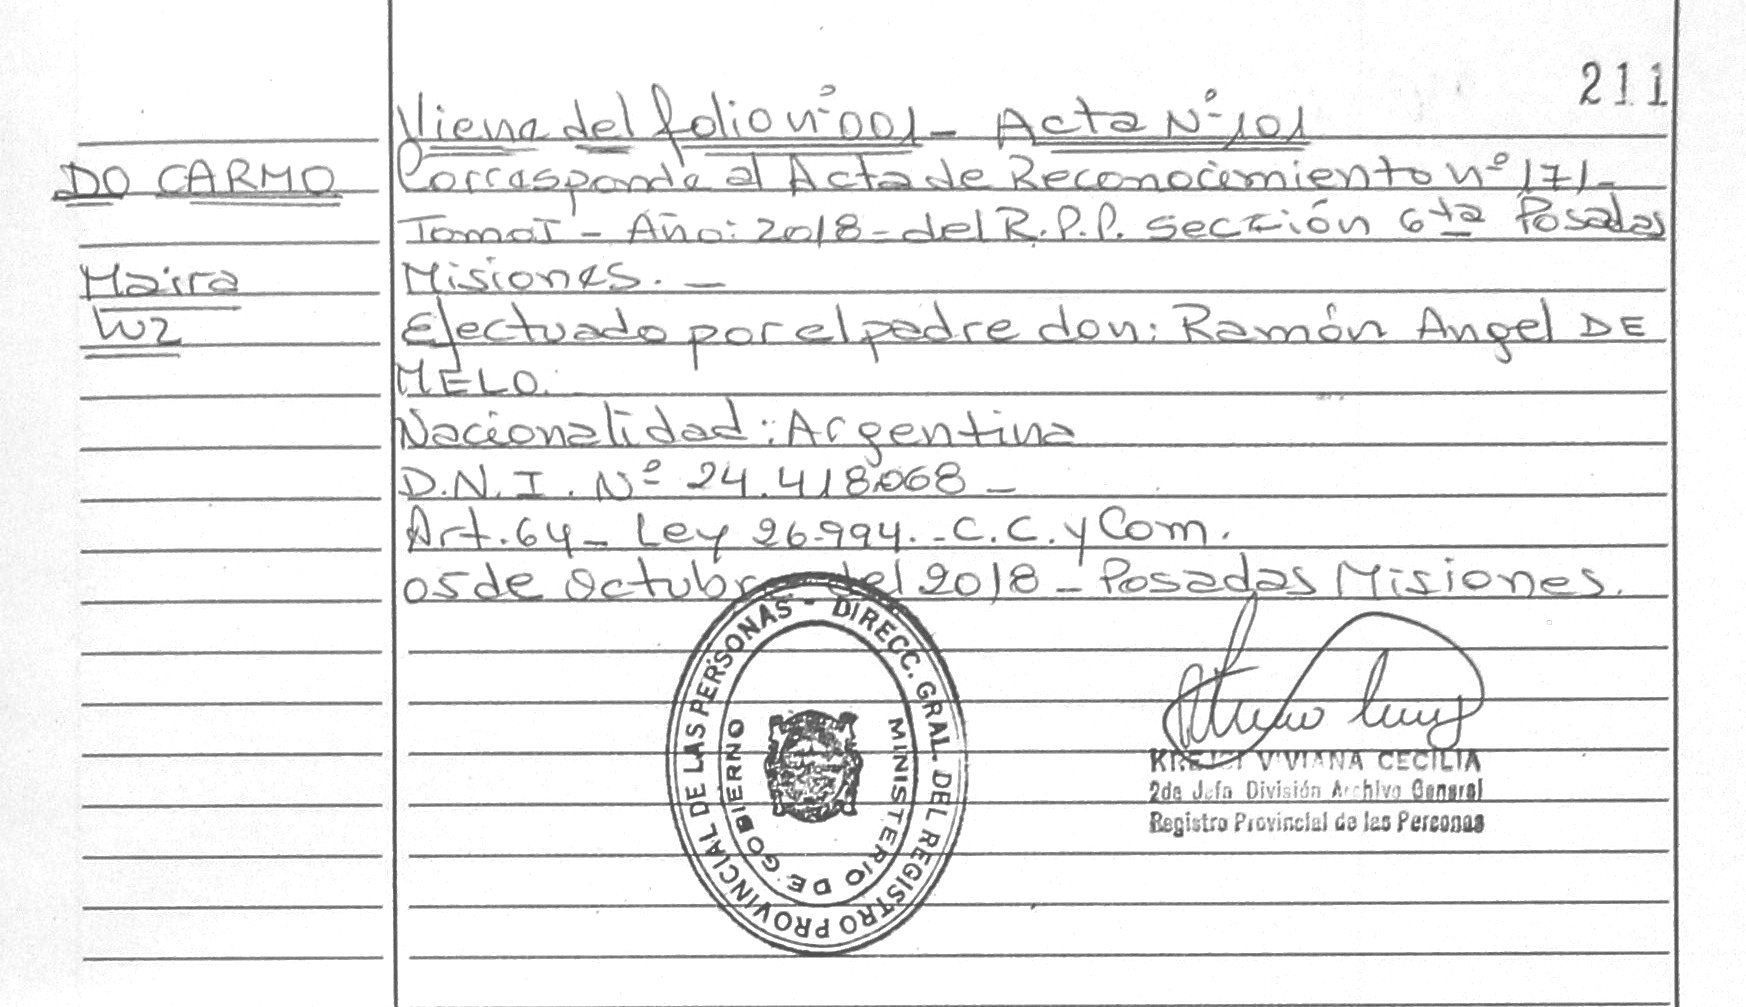 211
Viene del folio nº 001 - Acta Nº 101
DO CARMO
Corresponde al Acta de Reconocimiento nº 171 -
Tomo I - Año: 2018 - del R.P.P. sección 6ta Posadas
Maira
Misiones. -
Luz
Efectuado por el padre don: Ramón Angel DE
MELO.
Nacionalidad: Argentina
D.N.I. Nº 24.418.068 -
Art. 64 - Ley 26.994. - C.C. y Com.
05 de Octubre del 2018 - Posadas Misiones.
DIRECC. GRAL. DEL REGISTRO PROVINCIAL DE LAS PERSONAS -
MINISTERIO DE GOBIERNO
VIVIANA CECILIA
2da Jefa División Archivo General
Registro Provincial de las Personas